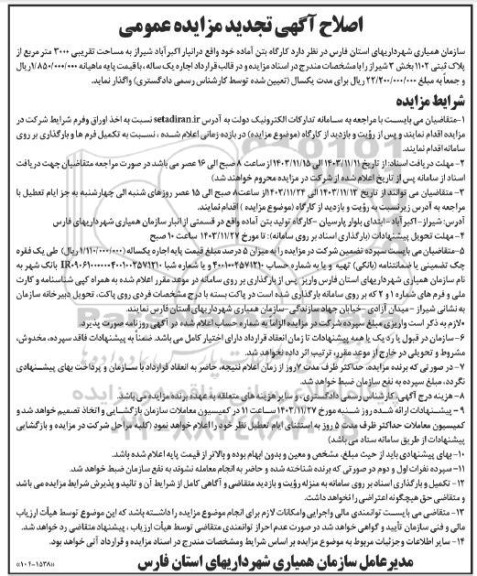 اصلاح آگهی تجدید مزایده عمومی
سازمان همیاری شهرداریهای استان فارس در نظر دارد کارگاه بتن آماده خود واقع در انبار اکبرآباد شیراز به مساحت تقریبی ۳۰۰۰ متر مربع از
پلاک ثبتی ۱۱۰۲ بخش ۳ شیراز را با مشخصات مندرج در اسناد مزایده و در قالب قرارداد اجاره یک ساله، با قیمت پایه ماهیانه ۱/۸۵۰/۰۰۰/۰۰۰ ریال
و جمعاً به مبلغ ۲۲/۲۰۰/۰۰۰/۰۰۰ ریال برای مدت یکسال (تعیین شده توسط کارشناس رسمی دادگستری) واگذار نماید.
شرایط مزایده
۱-متقاضیان می بایست با مراجعه به سامانه تدارکات الکترونیک دولت به آدرس setadiran.ir نسبت به اخذ اوراق وفرم شرایط شرکت در
مزایده اقدام نمایند و پس از رؤیت و بازدید از کارگاه (موضوع مزایده) در بازه زمانی اعلام شده ، نسبت به تکمیل فرم ها و بارگذاری بر روی
سامانه اقدام نمایند.
۲- مهلت دریافت اسناد: از تاریخ ۱۴۰۳/۱۱/۱۱ الی ۱۴۰۳/۱۱/۱۵ از ساعت ۸ صبح الی ۱۶ عصر می باشد در صورت مراجعه متقاضیان جهت دریافت
اسناد از سامانه پس از تاریخ اعلام شده از شرکت در مزایده محروم خواهند شد)
۳- متقاضیان می توانند از تاریخ ۱۴۰۳/۱۱/۱۳ الی ۱۴۰۳/۱۱/۲۴ از ساعت۸ صبح الی ۱۵ عصر روزهای شنبه الی چهارشنبه به جز ایام تعطیل با
مراجعه به آدرس زیر نسبت به رؤیت و بازدید از کارگاه (موضوع مزایده ) اقدام نمایند.
آدرس: شیراز -اکبرآباد - ابتدای بلوار پارسیان -کارگاه تولید بتن آماده واقع در قسمتی از انبار سازمان همیاری شهرداریهای فارس
۴- مهلت تحویل پیشنهادات (بارگذاری اسناد بر روی سامانه): تا مورخ ۱۴۰۳/۱۱/۲۷ ساعت ۱۰ صبح
۵-متقاضیان می بایست سپرده تضمین شرکت در مزایده را به میزان ۵ درصد مبلغ قیمت پایه اجاره یکساله (۱/۱۱۰/۰۰۰/۰۰۰ ریال) طی یک فقره
چک تضمینی یا ضمانتنامه (بانکی) تهیه و یا به شماره حساب و یا شماره شبا بانک شهر به
نام سازمان همیاری شهرداریهای استان فارس واریز پس از بارگذاری بر روی سامانه در موعد مقرر اعلام شده به همراه کپی شناسنامه و کارت
ملی و فرم های شماره ۱ و ۲ که بر روی سامانه بارگذاری شده است در پاکت بسته با درج مشخصات فردی روی پاکت، تحویل دبیرخانه سازمان
به نشانی شیراز - میدان آزادی - خیابان جهاد سازندگی -سازمان همیاری شهرداریهای استان فارس نمایند.
*لازم به ذکر است واریزی مبلغ سپرده شرکت در مزایده الزاماً به شماره حساب اعلام شده در آگهی روزنامه صورت پذیرد.
۶- سازمان در قبول یا رد یک یا همه پیشنهادات تا زمان انعقاد قرارداد دارای اختیار کامل می باشد. ضمناً به پیشنهادات فاقد سپرده، مخدوش،
مشروط و تحویلی در خارج از موعد مقرر، ترتیب اثر داده نخواهد شد.
۷- در صورتی که برنده مزایده، حداکثر ظرف مدت ۷ روز از زمان اعلام نتیجه، حاضر به انعقاد قرارداد با سازمان و پرداخت بهای پیشنهادی
نگردد، مبلغ سپرده به نفع سازمان ضبط خواهد شد.
۸- هزینه درج آگهی، کارشناس رسمی دادگستری، و سایر هزینه های متعلقه به عهده برنده مزایده می باشد.
۹ - پیشنهادات ارائه شده روز شنبه مورخ ۱۴۰۳/۱۱/۲۷ ساعت ۱۱ در کمیسیون معاملات سازمان بازگشایی و اتخاذ تصمیم خواهد شد و
کمیسیون معاملات حداکثر ظرف مدت ۵ روز به استثنای ایام تعطیل نظر خود را اعلام خواهد نمود (کلیه مراحل شرکت در مزایده و بازگشایی
پیشنهادات از طریق سامانه ستاد می باشد)
۱۰- بهای پیشنهادی باید از حیث مبلغ، مشخص و معین و بدون ابهام بوده و بالاتر از قیمت پایه اعلام شده باشد.
۱۱- سپرده نفرات اول و دوم در صورتی که برنده شناخته شده و حاضر به انجام معامله نشوند به نفع سازمان ضبط خواهد شد.
۱۲- تکمیل و بارگذاری اسناد بر روی سامانه به منزله رؤیت و بازدید متقاضی و آگاهی کامل از شرایط آن و تائید و پذیرش شرایط مزایده می باشد
و متقاضی حق هیچگونه اعتراضی را نخواهد داشت.
۱۳- متقاضی می بایست توانمندی مالی واجرایی وامکانات لازم برای انجام موضوع مزایده را داشته باشد که این موضوع توسط هیأت ارزیاب
مالی و فنی سازمان تأیید و گواهی خواهد شد در صورت عدم احراز توانمندی متقاضی توسط هیأت ارزیاب ، پیشنهاد متقاضی رد خواهد شد.
۱۴- سایر اطلاعات وجزئیات مربوط به موضوع مزایده بر اساس شرایط ومشخصات مندرج در اسناد مزایده و قرارداد آتی خواهد بود.
مدیرعامل سازمان همیاری شهرداریهای استان فارس
«۱۰۴-۱۵۳۸»